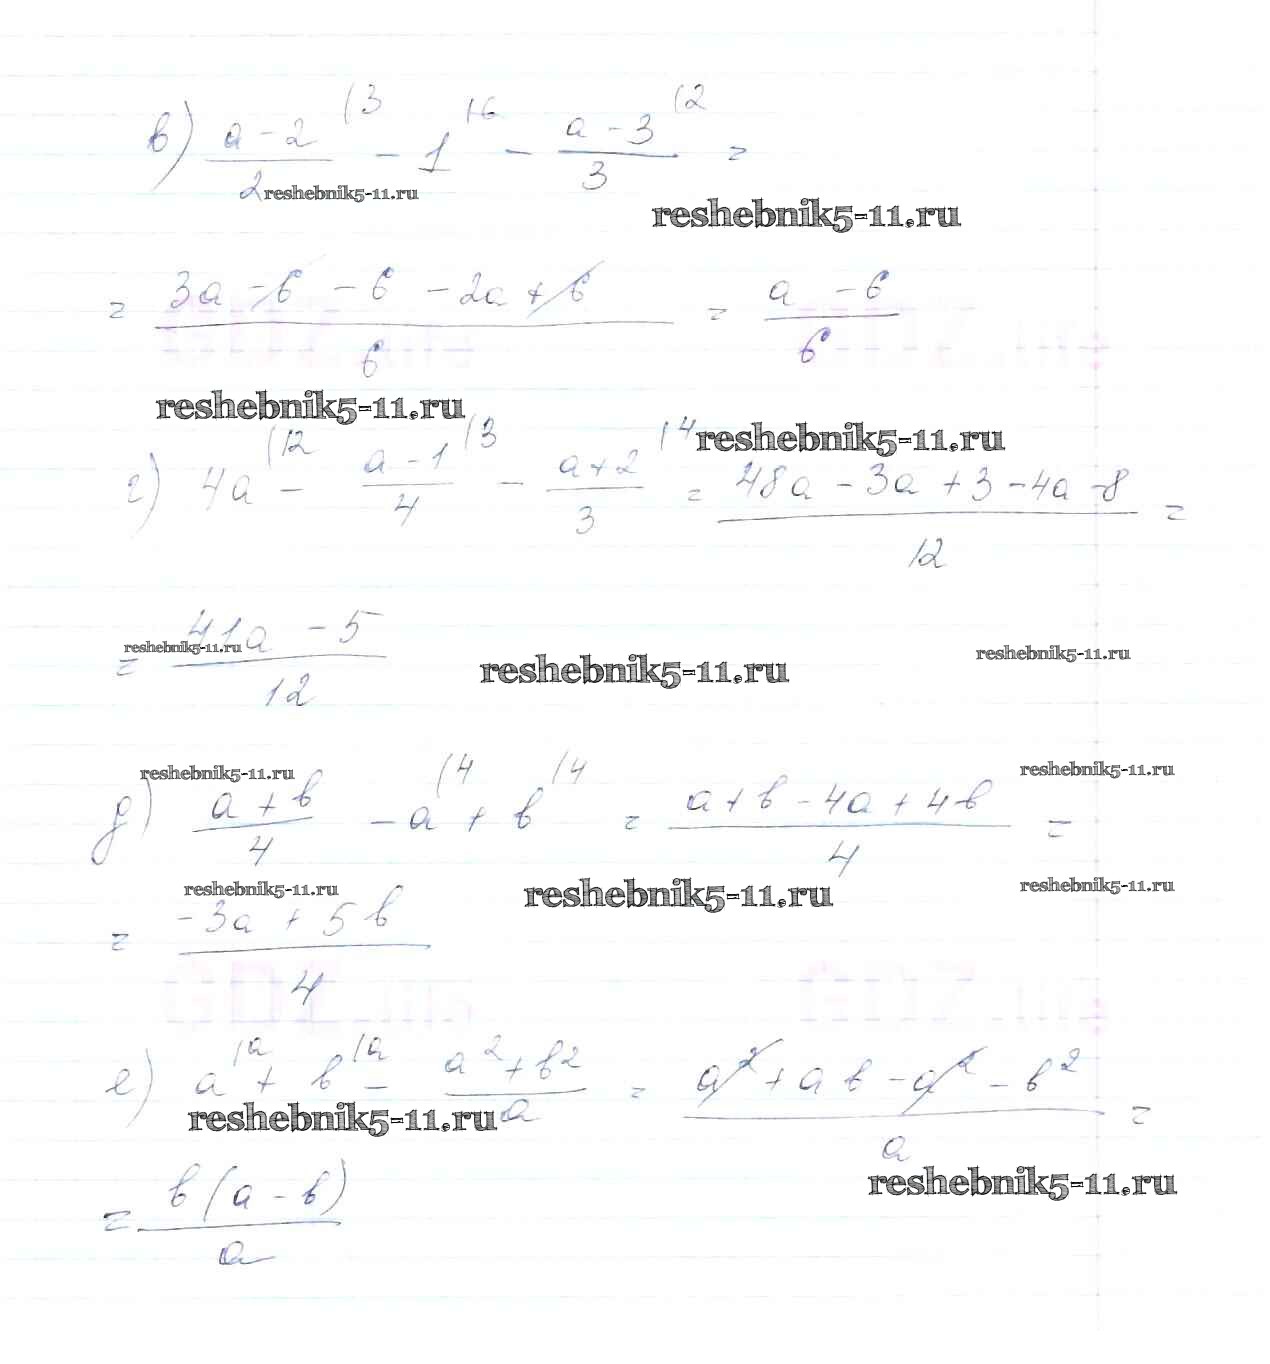 в) (a - 2)/2 (3 - 1 (6 - (a - 3)/3 (2 =
reshebnik5-11.ru
reshebnik5-11.ru
= (3a - 6 - 6 - 2a + 6)/6 = (a - 6)/6
reshebnik5-11.ru
reshebnik5-11.ru
г) 4a (12 - (a - 1)/4 (3 - (a + 2)/3 (4 = (48a - 3a + 3 - 4a - 8)/12 =
= (41a - 5)/12
reshebnik5-11.ru reshebnik5-11.ru reshebnik5-11.ru
reshebnik5-11.ru reshebnik5-11.ru
д) (a + b)/4 - a (4 + b (4 = (a + b - 4a + 4b)/4 =
reshebnik5-11.ru reshebnik5-11.ru reshebnik5-11.ru
= (-3a + 5b)/4
е) a (a + b (a - (a² + b²)/a = (a² + ab - a² - b²)/a =
reshebnik5-11.ru
reshebnik5-11.ru
= b(a - b)/a